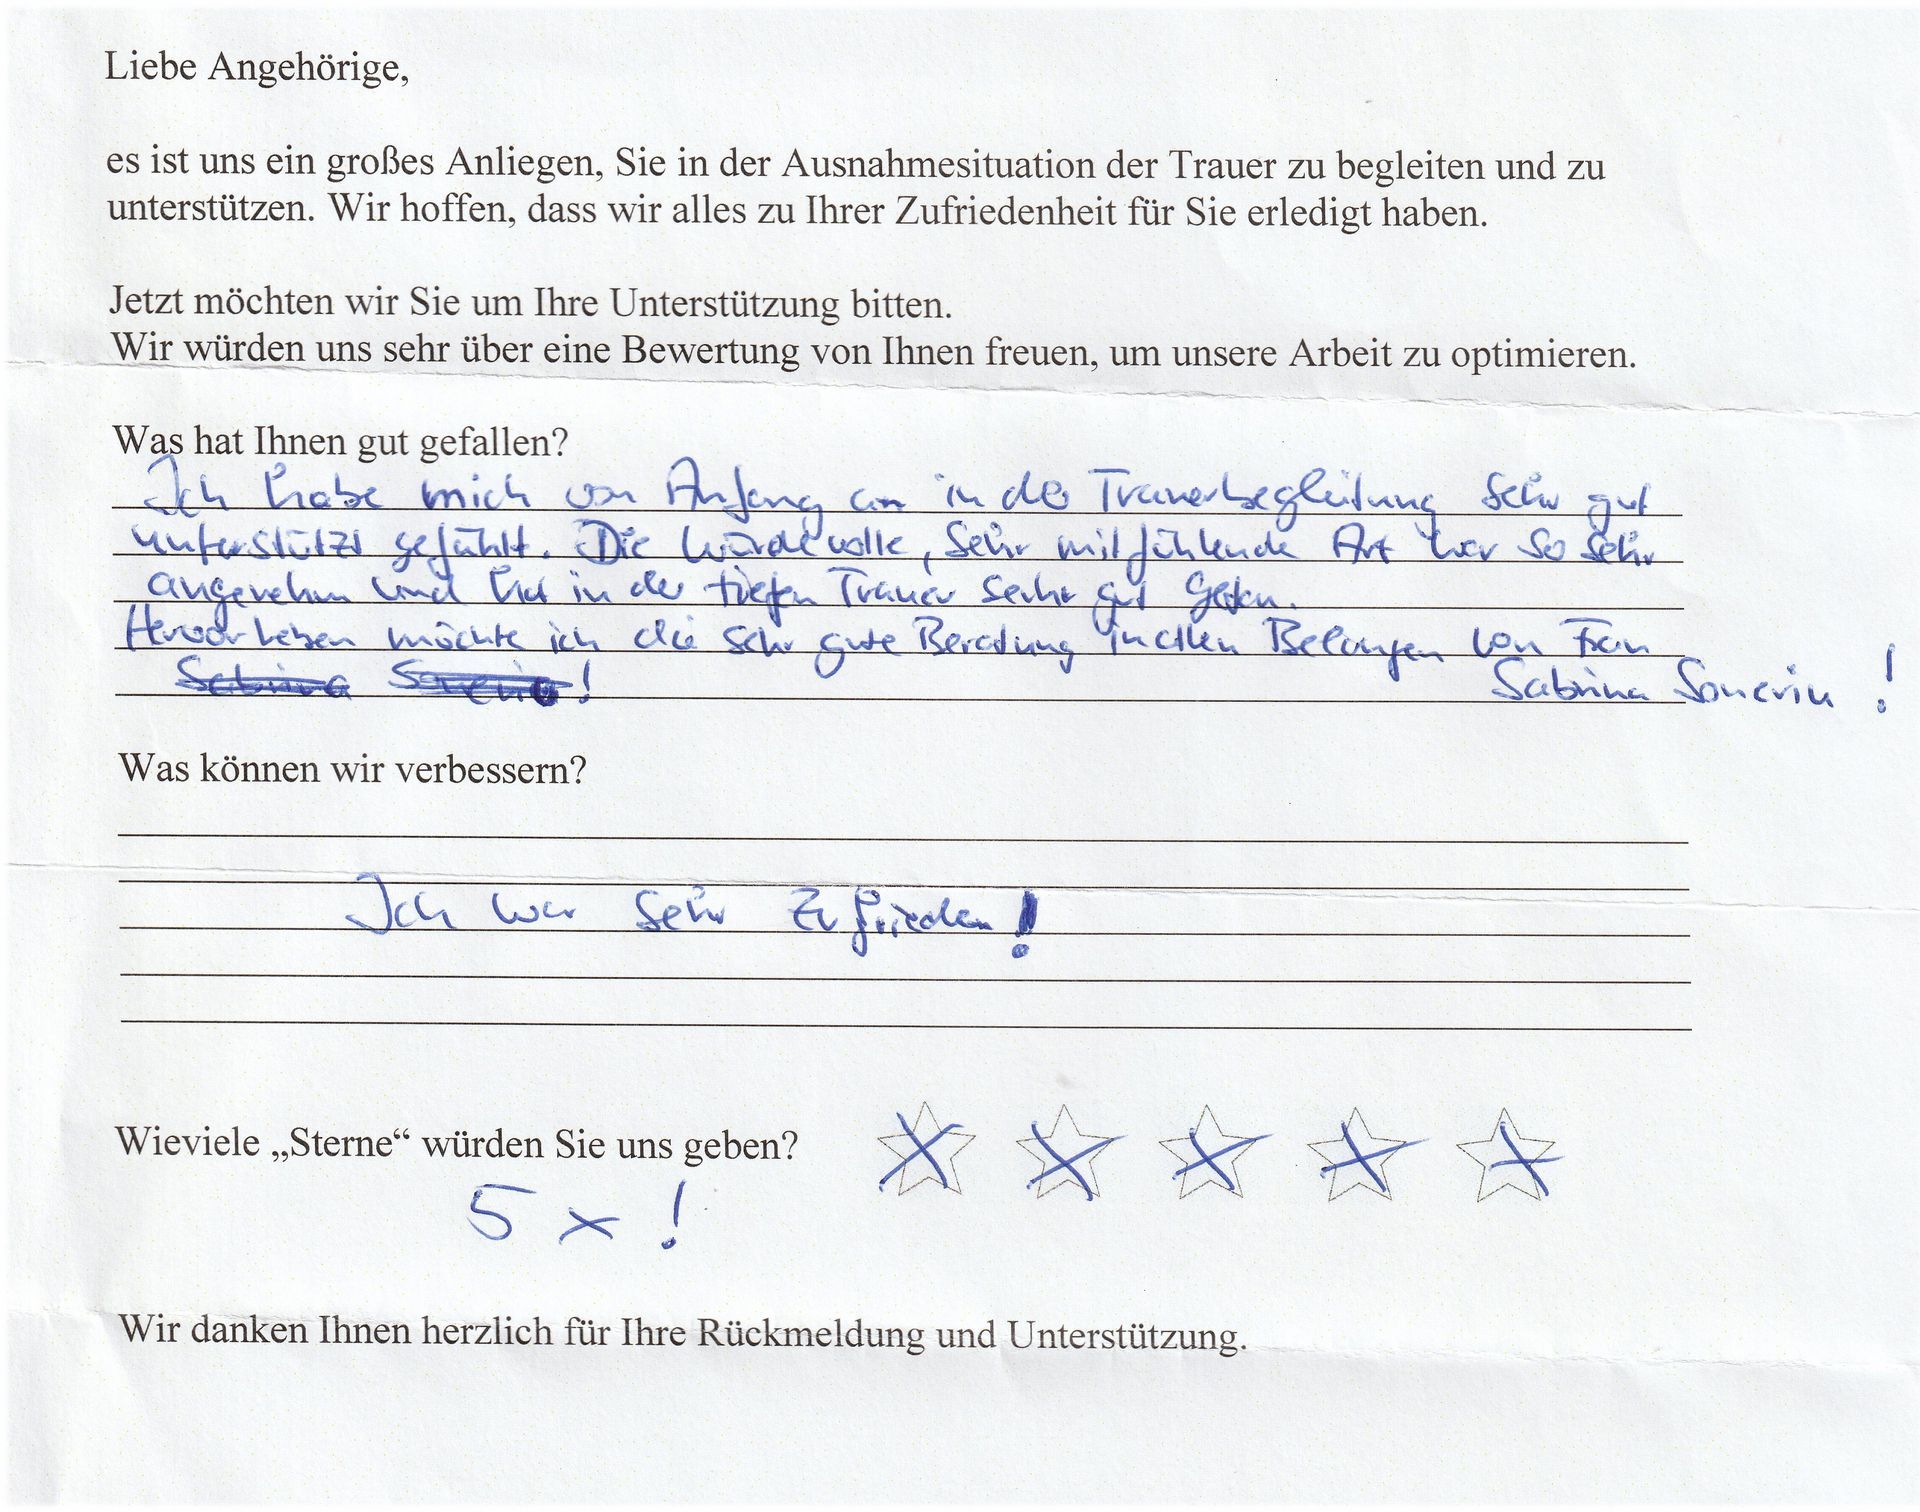 Liebe Angehörige,
es ist uns ein großes Anliegen, Sie in der Ausnahmesituation der Trauer zu begleiten und zu
unterstützen. Wir hoffen, dass wir alles zu Ihrer Zufriedenheit für Sie erledigt haben.
Jetzt möchten wir Sie um Ihre Unterstützung bitten.
Wir würden uns sehr über eine Bewertung von Ihnen freuen, um unsere Arbeit zu optimieren.
Was hat Ihnen gut gefallen?
Ich habe mich von Anfang an in der Trauerbegleitung sehr gut
unterstützt gefühlt. Die würdevolle, sehr mitfühlende Art war so sehr
angenehm und hat in der tiefen Trauer sehr gut getan.
Hervorheben möchte ich die sehr gute Beratung in allen Belangen von Frau
Sabrina !
Sabrina Sonerin !
Was können wir verbessern?
Ich war sehr zufrieden!
Wieviele „Sterne“ würden Sie uns geben?
5 x !
Wir danken Ihnen herzlich für Ihre Rückmeldung und Unterstützung.